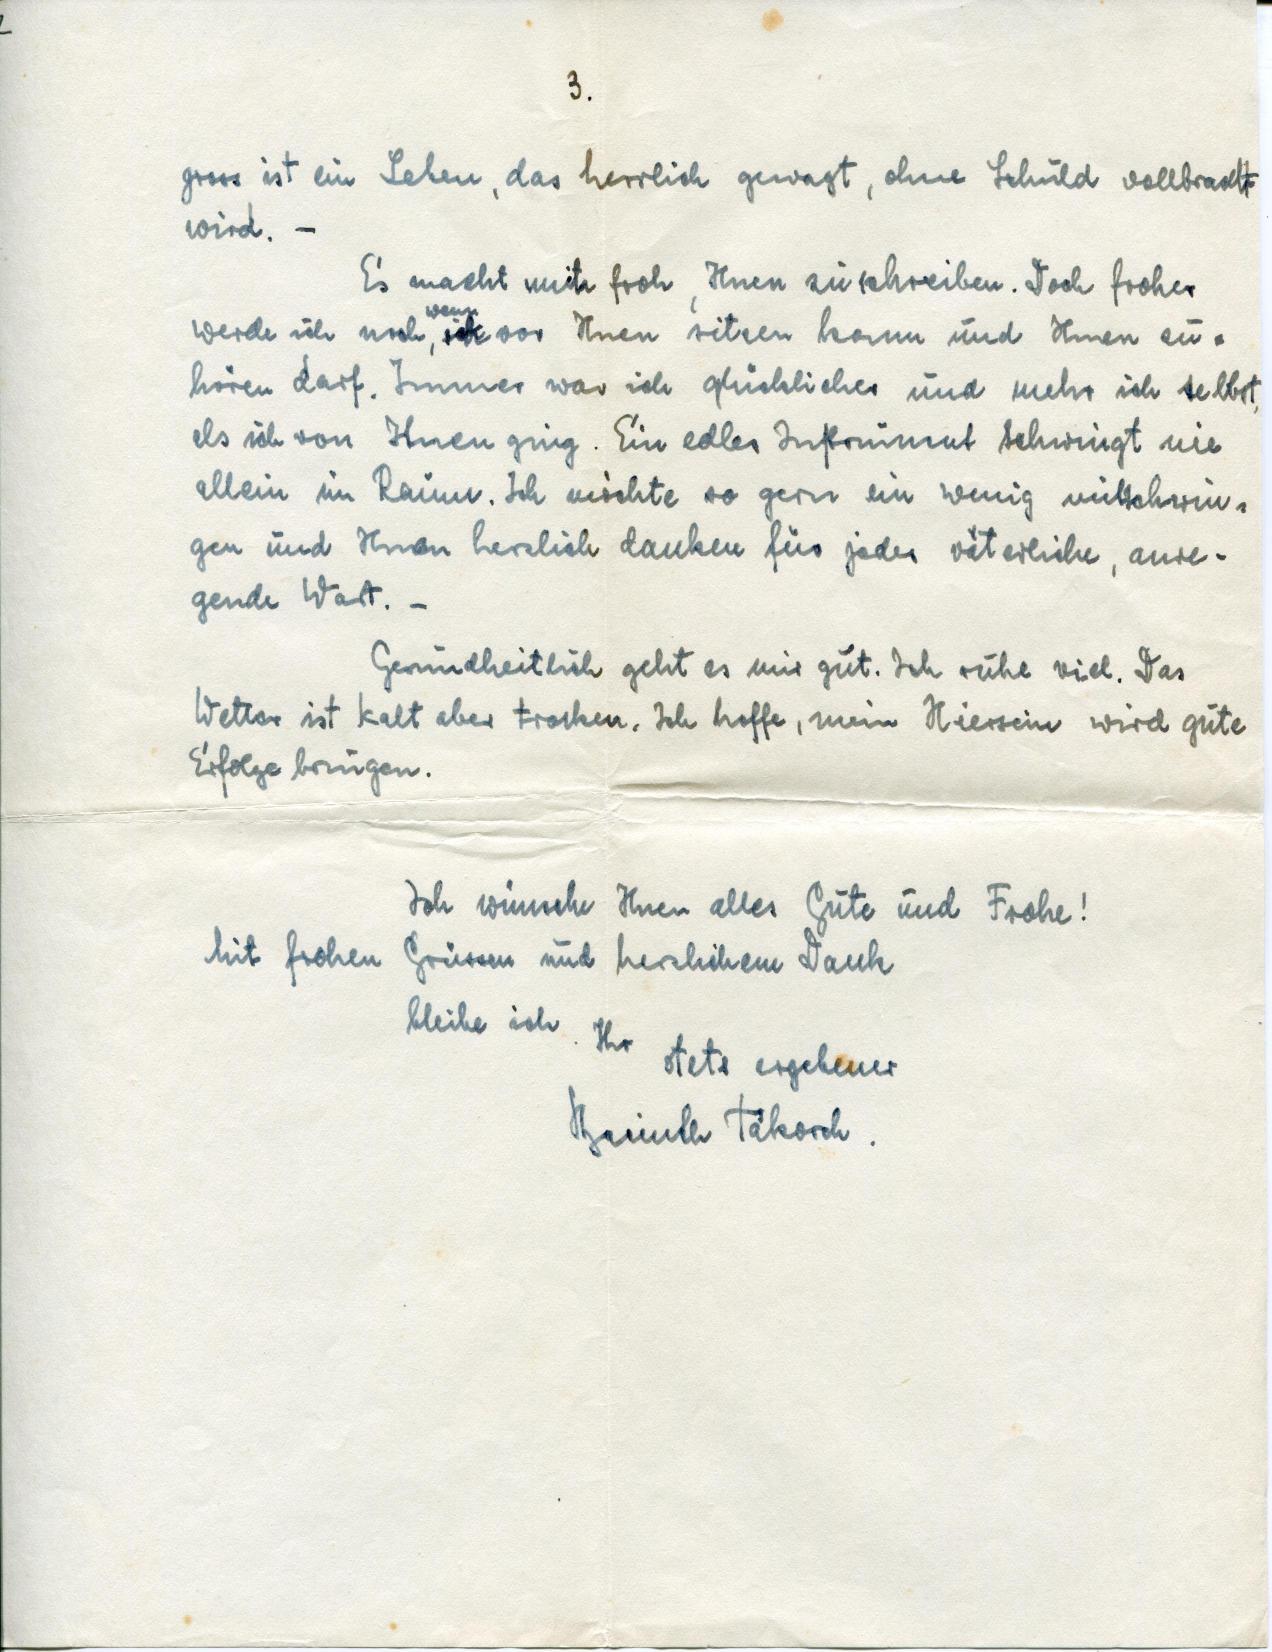 3.
gross ist ein Leben, das herrlich gewagt, ohne Schuld vollbracht
wird. –
Es macht mich froh, Ihnen zu schreiben. Doch froher
werde ich noch, wenn ich vor Ihnen sitzen kann und Ihnen zu-
hören darf. Immer war ich glücklicher und mehr ich selbst,
als ich von Ihnen ging. Ein edles Instrument schwingt nie
allein im Raum. Ich möchte so gern ein wenig mitschwin-
gen und Ihnen herzlich danken für jedes väterliche, anre-
gende Wort. –
Gesundheitlich geht es mir gut. Ich ruhe viel. Das
Wetter ist kalt aber trocken. Ich hoffe, mein Hiersein wird gute
Erfolge bringen.
Ich wünsche Ihnen alles Gute und Frohe!
Mit frohen Grüssen und herzlichem Dank
bleibe ich Ihr
stets ergebener